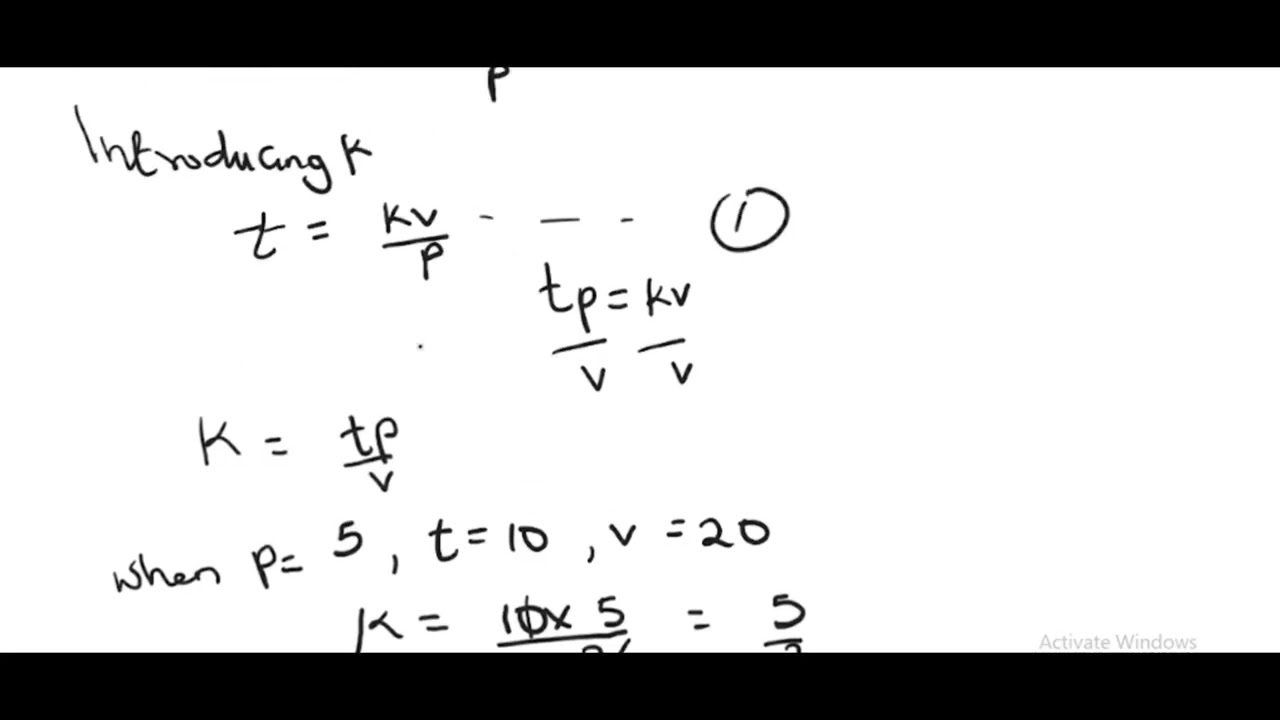 p
Introducing k
t = kv/p - — - ①
tp/v = kv/v
K = tp/v
when p = 5, t = 10, v = 20
K = 10 x 5 / 20 = 5/2
Activate Windows